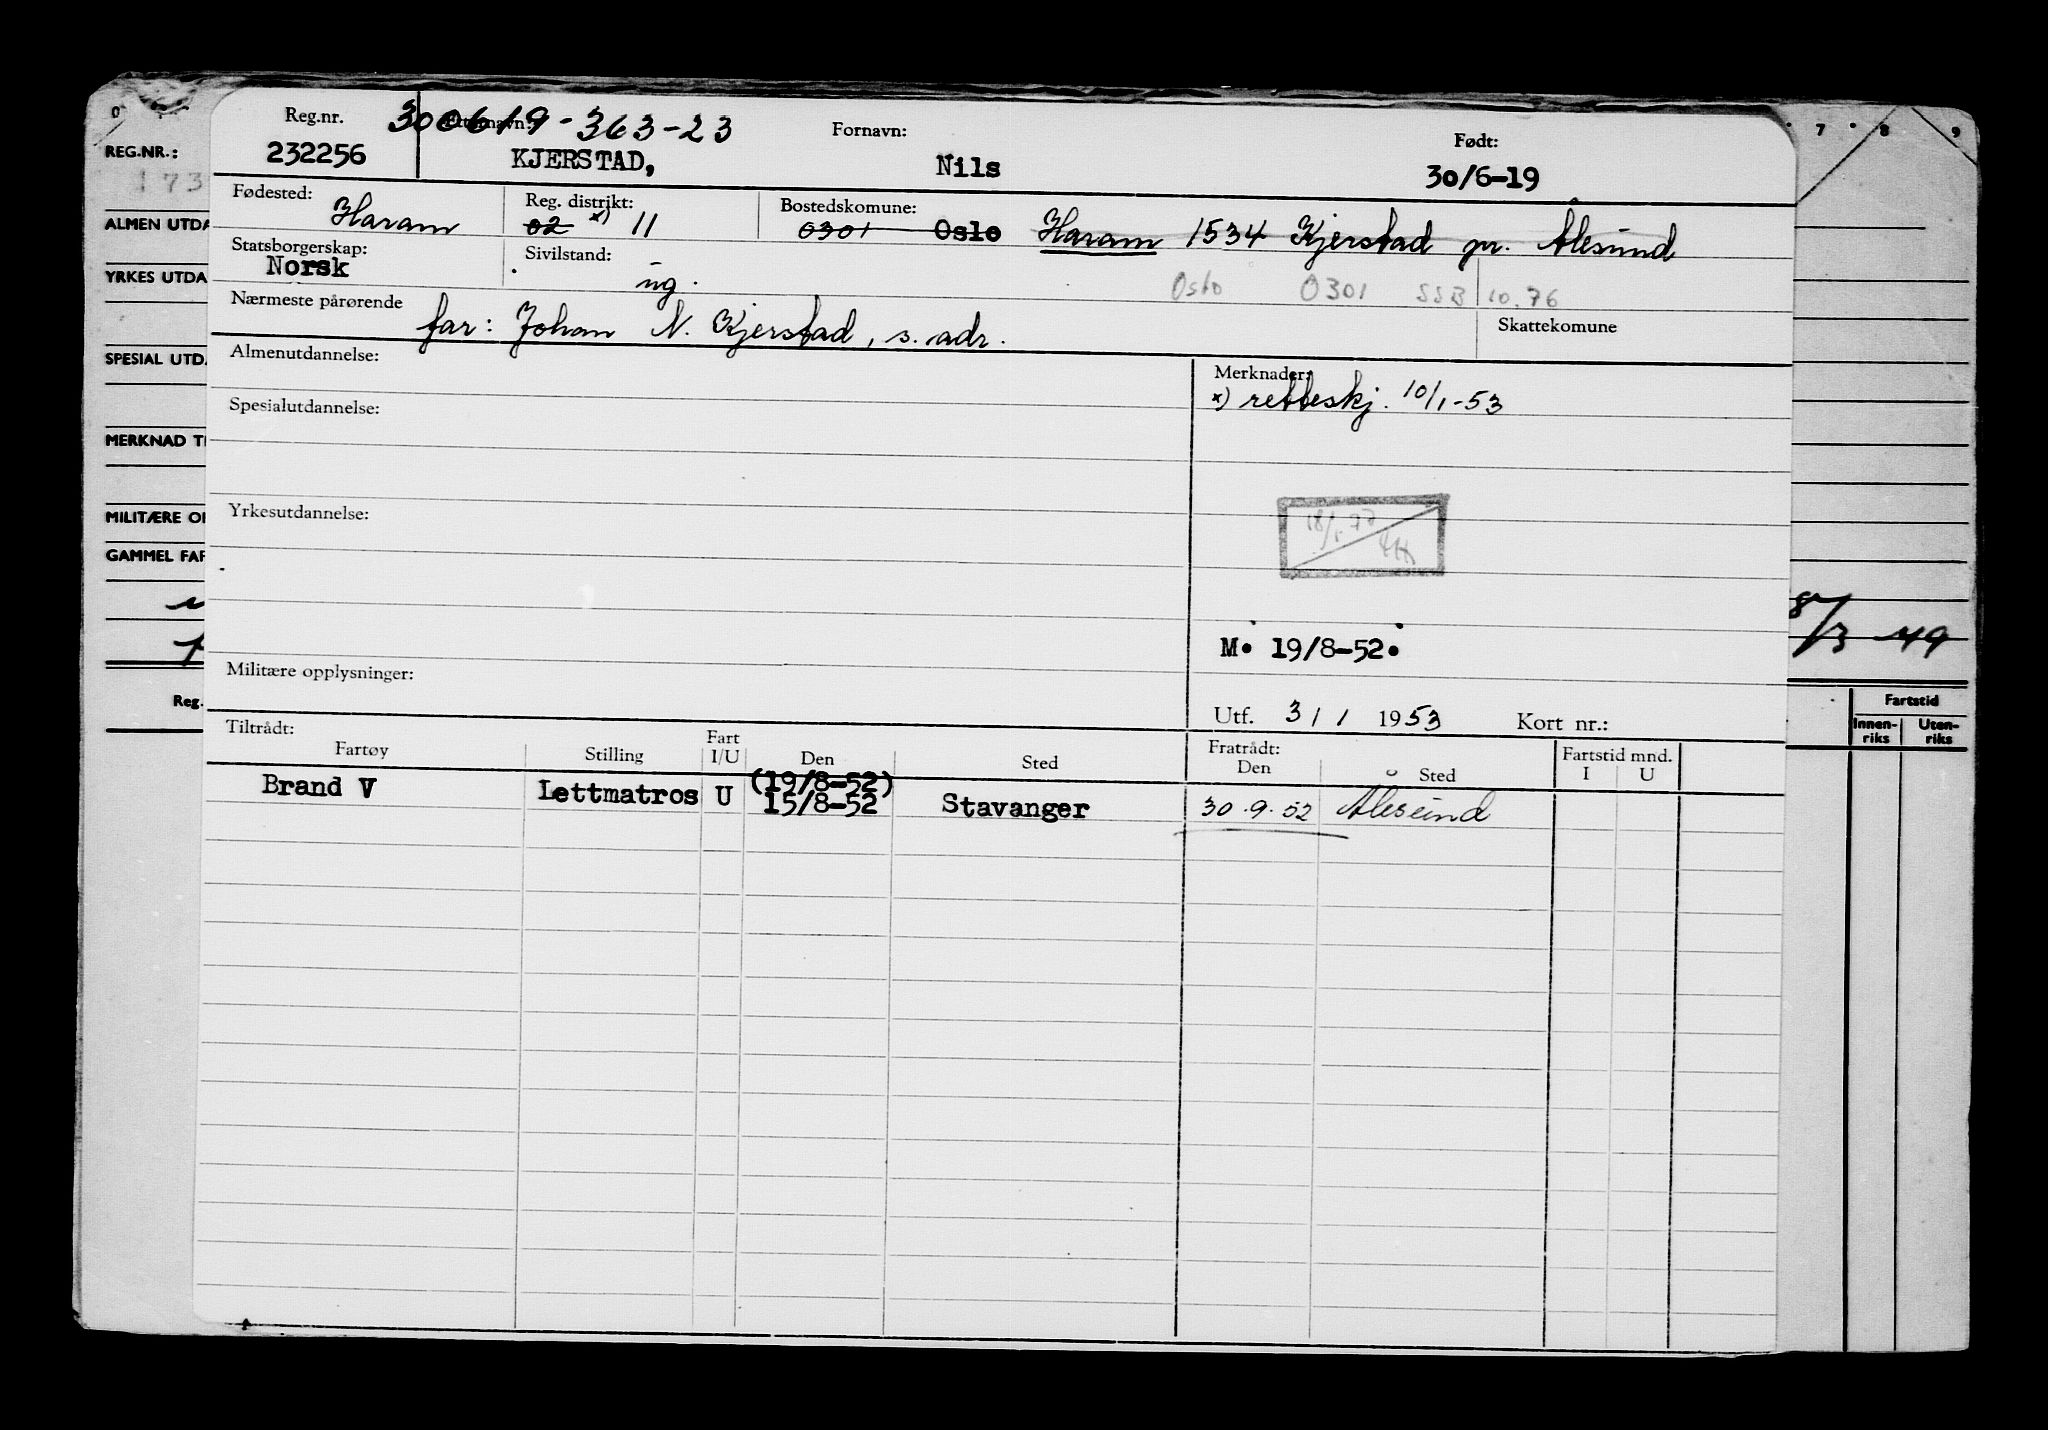 0 7 8 9
REG.NR.:
173
ALMEN UTDA
YRKES UTDA
SPESIAL UTDA
MERKNAD TI
MILITÆRE OP
GAMMEL FAR
8/3 49
Reg.
Fartstid
Innen-riks Uten-riks
Reg.nr. 300619-363-23 Etternavn: Fornavn: Født:
232256 KJERSTAD, Nils 30/6-19
Fødested: Haram Reg. distrikt: 02 x) 11 Bostedskomune: 0301 Oslo Haram 1534 Kjerstad pr. Ålesund
Statsborgerskap: Norsk Sivilstand: ug. Oslo 0301 SSB 10.76
Nærmeste pårørende far: Johan N. Kjerstad, s. adr. Skattekomune
Almenutdannelse: Merknader:
x) retteskj. 10/1-53
Spesialutdannelse:
Yrkesutdannelse:
18/1.77
M. 19/8-52.
Militære opplysninger:
Utf. 3/1 1953 Kort nr.:
Tiltrådt: Fratrådt: Fartstid mnd.
Fartøy Stilling Fart I/U Den Sted Den Sted I U
(19/8-52)
Brand V Lettmatros U 15/8-52 Stavanger 30.9.52 Ålesund